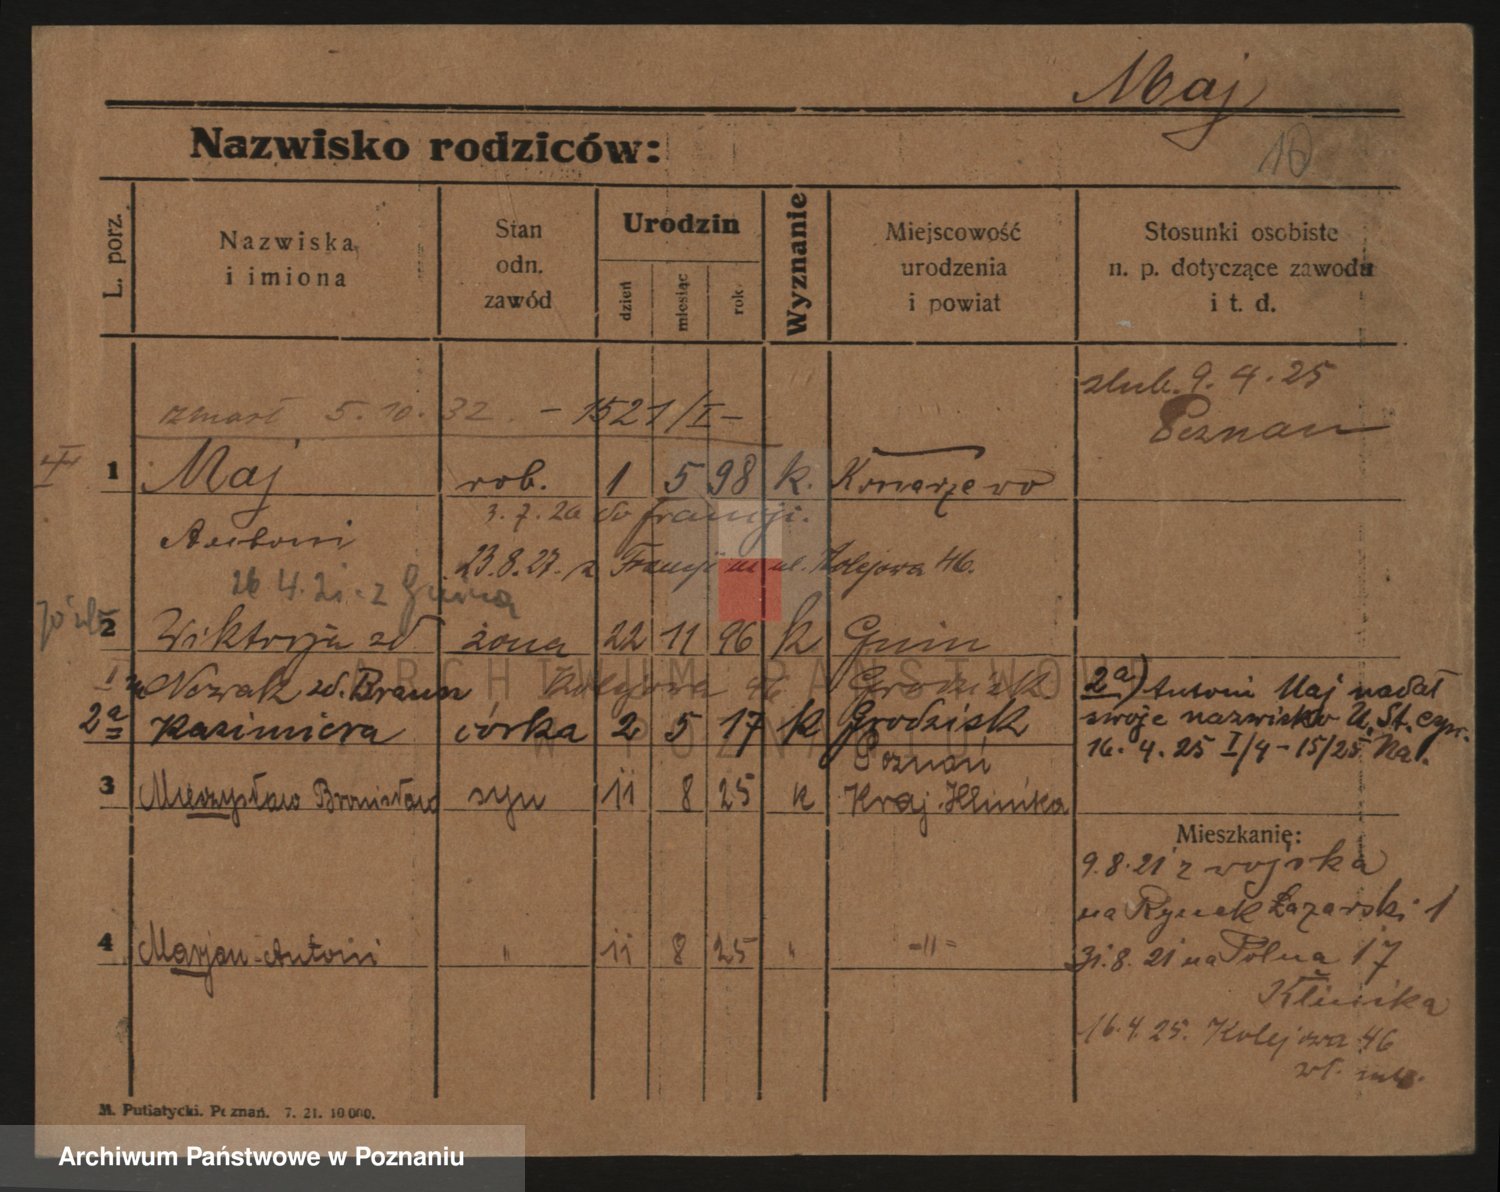 Maj
10
Nazwisko rodziców:
L. porz.
Nazwiska i imiona
Stan odn. zawód
Urodzin
dzień
miesiąc
rok
Wyznanie
Miejscowość urodzenia i powiat
Stosunki osobiste n. p. dotyczące zawodu i t. d.
ślub. 9. 4. 25
Poznań
zmarł 5. 10. 32 – 1521/I –
1 Maj rob. 1 5 98 k. Konarzewo
3. 7. 26 do Francji.
Antoni
23. 8. 27. z Francji ul. Kolejowa 46.
26 4. 21. z Gnina
2 Wiktorja zd żona 22 11 96 k Gnin
Nowak zd. Braun Kolejowa 46 Grodzisk
2a Kazimiera córka 2 5 17 k Grodzisk
2a) Antoni Maj nadał
swoje nazwisko U. St. cyw.
16. 4. 25 I/4 – 15/25 Na.
Poznań
3 Mieczysław Bronisław syn 11 8 25 k Kraj. Klinika
Mieszkanie:
9. 8. 21 z wojska
na Rynek Łazarski 1
4 Marjan-Antoni " 11 8 25 " -"-
31. 8. 21 na Polna 17
Klinika
16. 4. 25. Kolejowa 46
M. Putiatycki. Poznań. 7. 21. 10 000.
ARCHIWUM PAŃSTWOWE
W POZNANIU
Archiwum Państwowe w Poznaniu